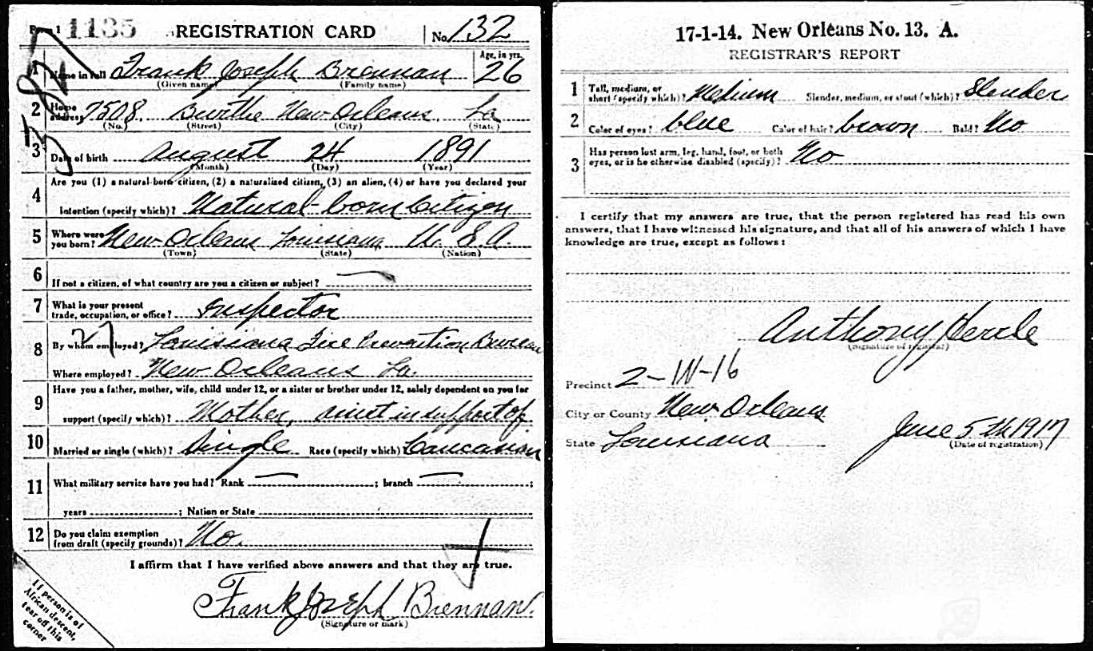 Form 1 1135 REGISTRATION CARD No. 132
1 Name in full Frank Joseph Brennan Age, in yrs. 26
(Given name) (Family name)
2 Home address 7508 Burthe New Orleans La
(No.) (Street) (City) (State)
3 Date of birth August 24 1891
(Month) (Day) (Year)
4 Are you (1) a natural-born citizen, (2) a naturalized citizen, (3) an alien, (4) or have you declared your
intention (specify which)? Natural-born Citizen
5 Where were you born? New Orleans Louisiana U.S.A.
(Town) (State) (Nation)
6 If not a citizen, of what country are you a citizen or subject? —
7 What is your present trade, occupation, or office? Inspector
27
8 By whom employed? Louisiana Fire Prevention Bureau
Where employed? New Orleans La.
9 Have you a father, mother, wife, child under 12, or a sister or brother under 12, solely dependent on you for
support (specify which)? Mother, in support of
10 Married or single (which)? Single Race (specify which)? Caucasian
11 What military service have you had? Rank — ; branch — ;
years ; Nation or State
12 Do you claim exemption from draft (specify grounds)? No.
I affirm that I have verified above answers and that they are true.
Frank Joseph Brennan.
(Signature or mark)
If person is of
African descent,
tear off this
corner
17-1-14. New Orleans No. 13. A.
REGISTRAR'S REPORT
1 Tall, medium, or short (specify which)? Medium Slender, medium, or stout (which)? Slender
2 Color of eyes? blue Color of hair? brown Bald? No
3 Has person lost arm, leg, hand, foot, or both
eyes, or is he otherwise disabled (specify)? No
I certify that my answers are true, that the person registered has read his own
answers, that I have witnessed his signature, and that all of his answers of which I have
knowledge are true, except as follows:
Anthony
(Signature of registrar)
Precinct 2-W-16
City or County New Orleans
State Louisiana June 5th 1917
(Date of registration)